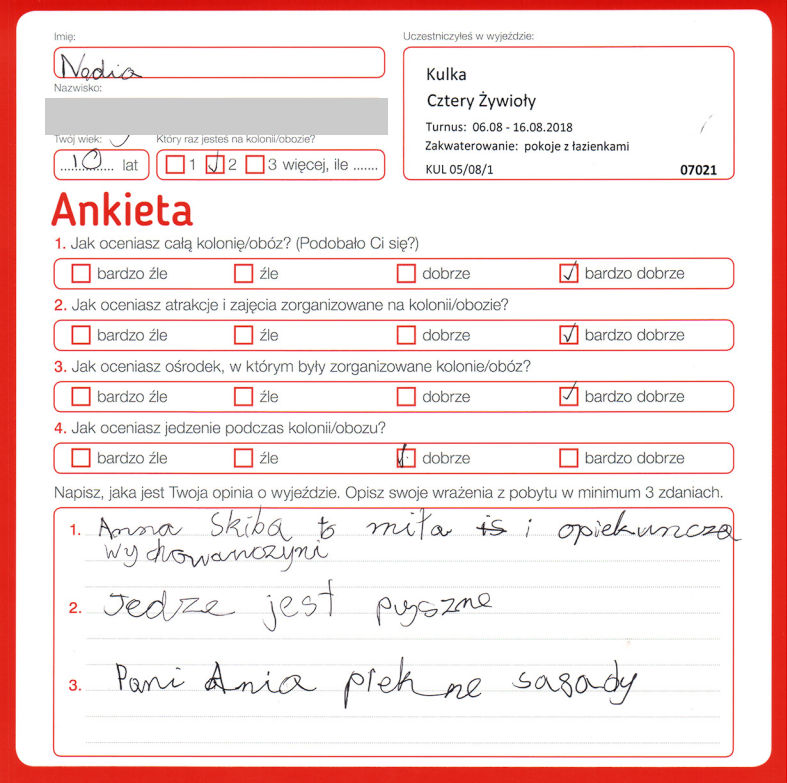 Imię:
Nadia
Nazwisko:
Twój wiek:
10 lat
Który raz jesteś na kolonii/obozie?
1 2 3 więcej, ile .......
Uczestniczyłeś w wyjeździe:
Kulka
Cztery Żywioły
Turnus: 06.08 - 16.08.2018
Zakwaterowanie: pokoje z łazienkami
KUL 05/08/1 07021
Ankieta
1. Jak oceniasz całą kolonię/obóz? (Podobało Ci się?)
bardzo źle źle dobrze bardzo dobrze
2. Jak oceniasz atrakcje i zajęcia zorganizowane na kolonii/obozie?
bardzo źle źle dobrze bardzo dobrze
3. Jak oceniasz ośrodek, w którym były zorganizowane kolonie/obóz?
bardzo źle źle dobrze bardzo dobrze
4. Jak oceniasz jedzenie podczas kolonii/obozu?
bardzo źle źle dobrze bardzo dobrze
Napisz, jaka jest Twoja opinia o wyjeździe. Opisz swoje wrażenia z pobytu w minimum 3 zdaniach.
1. Anna Skiba to miła is i opiekuncza
wychowawczyni
2. Jedze jest pyszne
3. Pani Ania piekne sasady